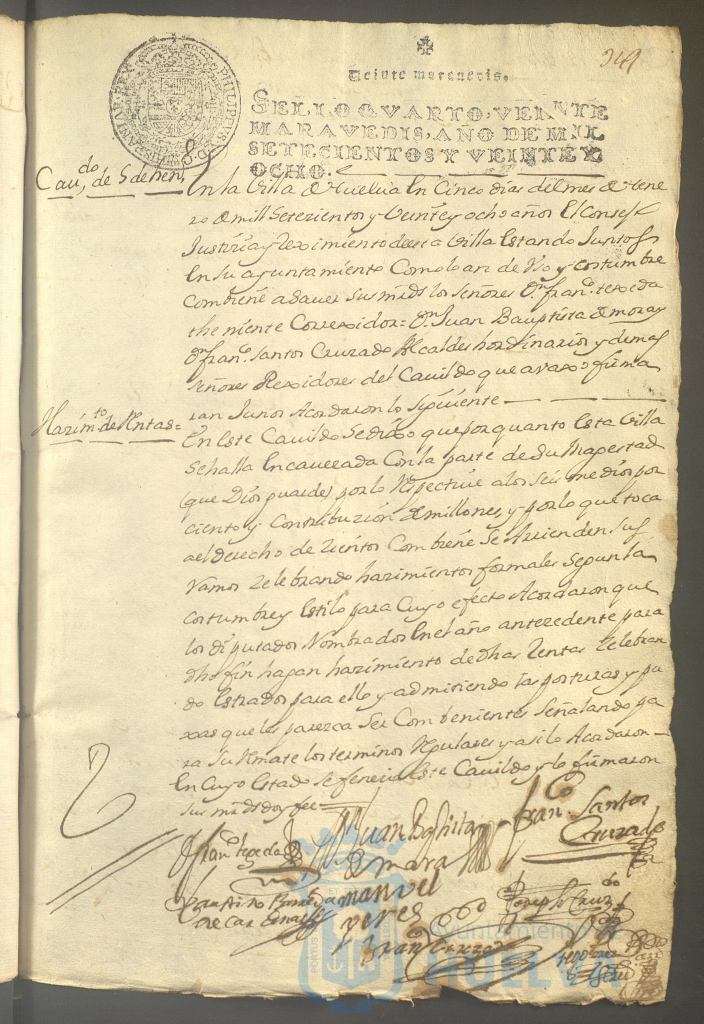 Veinte maravedis.
SELLO QVARTO, VEINTE
MARAVEDIS, AÑO DE MIL
SETECIENTOS Y VEINTE Y
OCHO.
PHILIPPVS V D G HISPANIAR REX
Cau.do de 5 de hen.o
En la Villa de Huelua en Cinco dias del mes de hene
ro de mill Setezientos y Veinte y ocho años El Consejo
Justizia y Reximiento desta Villa estando Juntos
en su ayuntamiento Como lo an de Vso y Costumbre
Combiene a Sauer sus mrds los Señores Dn fran.co texeda
theniente Correxidor = Dn Juan Bauptista de mora y
Dn fran.co Santos Cruzado Alcaldes hordinarios y demas
Señores Rexidores del Cauildo que auaxo firma
ran Juntos Acordaron lo Siguiente
Hazim.to de Rentas =
En este Cauildo Se dixo que por quanto esta Villa
Se halla encauezada Con la parte de Su Magestad
que Dios guarde por lo Respectiue a los Seis medios por
ciento y Contribuzion de millones, y por lo que toca
a el derecho de Zientos Combiene Se Arrienden Sus
Ramos Zelebrando hazimientos formales Segun la
costumbre y estilo para Cuyo efecto Acordaron que
los diputados Nombrados en el año antezedente para
dho fin hagan hazimiento de dhas Rentas Zelebran
do estrados para ello y admitiendo las posturas y pu
xas que les parezca Ser Combenientes Señalando pa
ra Su Remate los terminos Regulares y asi lo Acordaron
en Cuyo estado Se fenezio este Cauildo y lo firmaron
sus mrds doy fee =
fran.co texeda
Juan Baptista
de mora
fran.co Santos
Cruzado
manuel
perez
Joseph Cruz.do
Ayuntamiento de
HUELVA